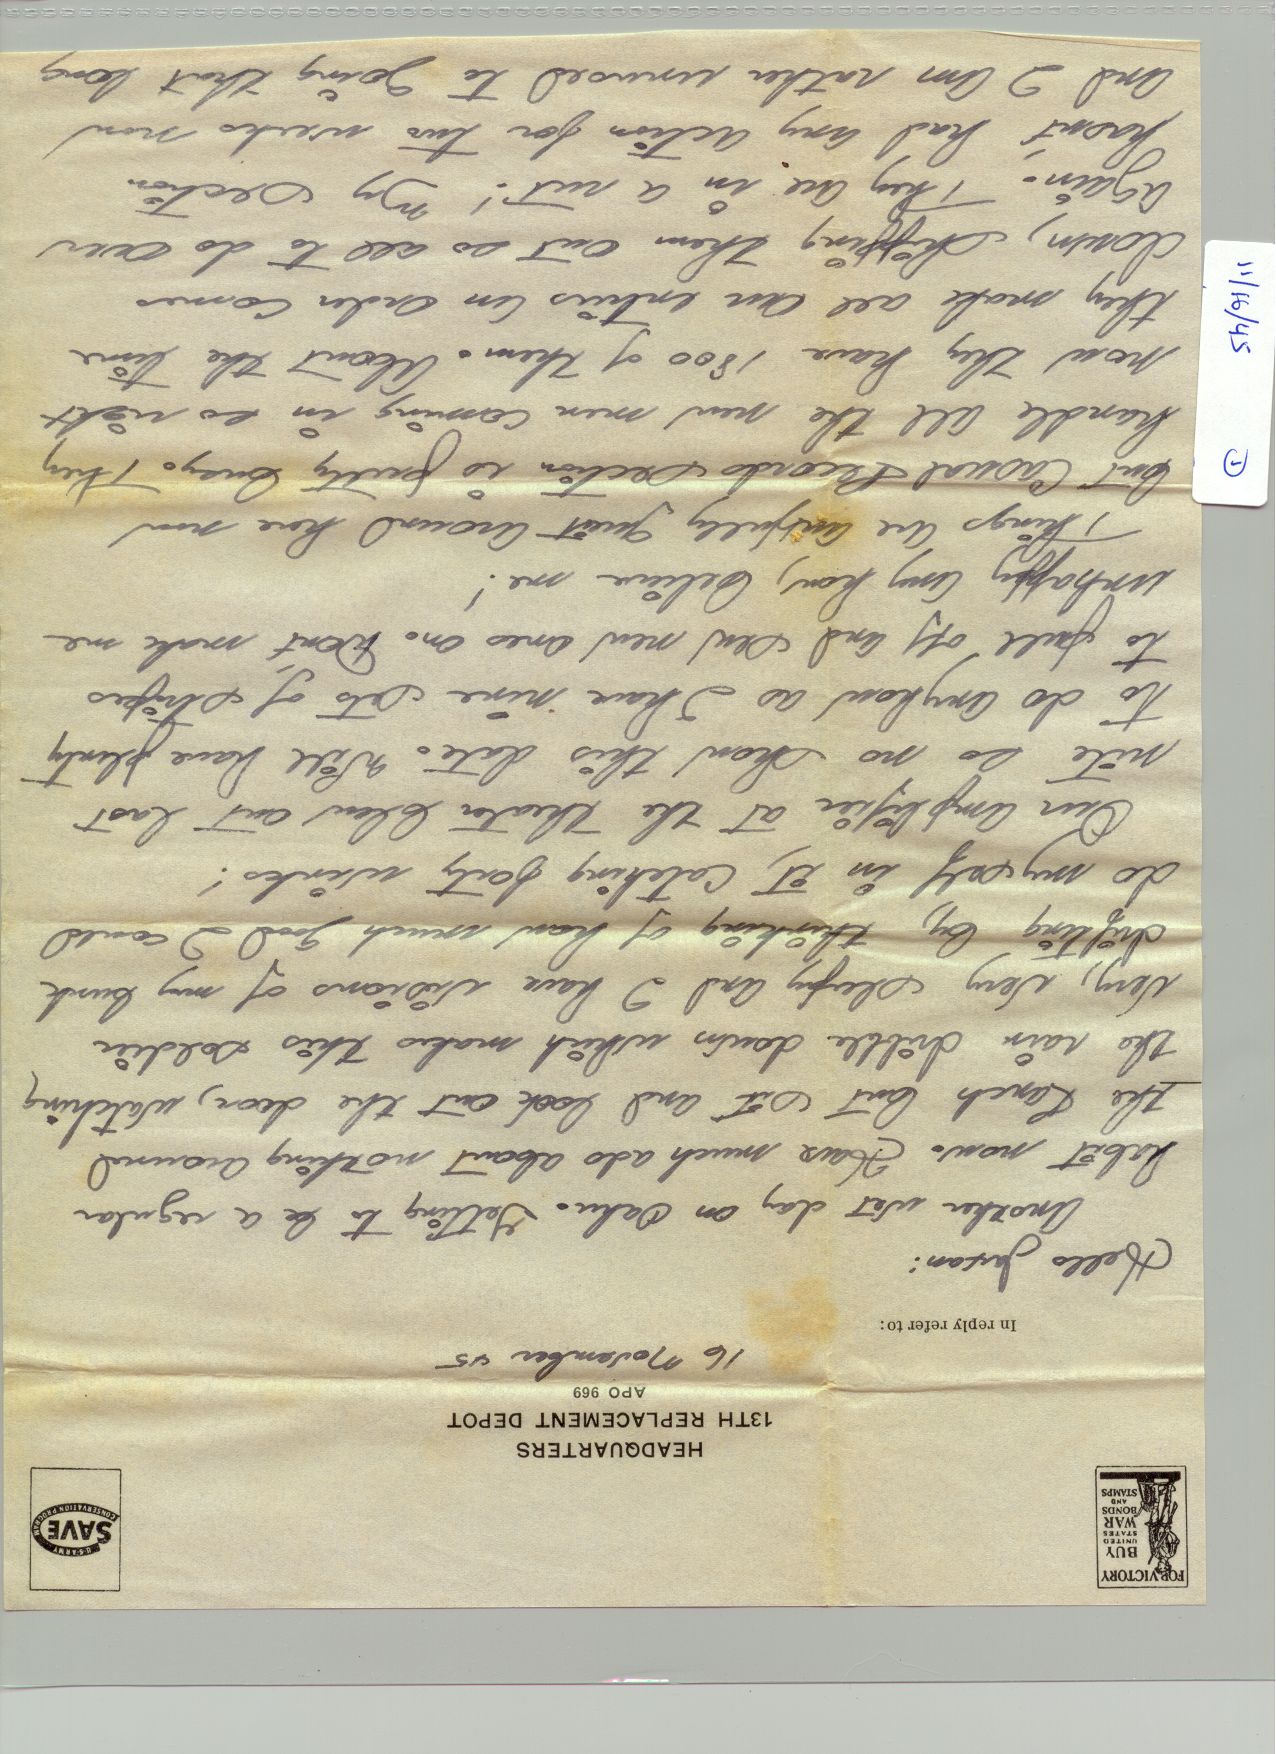 FOR VICTORY
BUY
UNITED
STATES
WAR
BONDS
AND
STAMPS
U·S·ARMY
SAVE
CONSERVATION PROGRAM
HEADQUARTERS
13TH REPLACEMENT DEPOT
APO 969
16 November 45
In reply refer to:
Hello
Another wet day on Oahu. Getting to be a regular
habit now. Have much ado about nothing around
the Ranch but sit and look out the door, watching
the rain dribble down which makes this soldier
very, very sleepy and I have visions of my bunk
drifting by, thinking of how much good I could
do myself in it, catching forty winks!
Our amplifier at the theater blew out last
nite so no show this date. Will have plenty
to do anyhow as I have nine sets of stripes
to pull off and sew new ones on. Don't make me
unhappy any how, believe me!
Things are awfully quiet around here now
but Casual Records Section is pretty busy. They
handle all the new men coming in so right
now they have 1800 of them. About the time
they make all our entries an order comes
down, shipping them out so all to do over
again. They are in a rut! My section
hasn't had any action for two weeks now
and I am rather unused to going that long
11/16/45
1